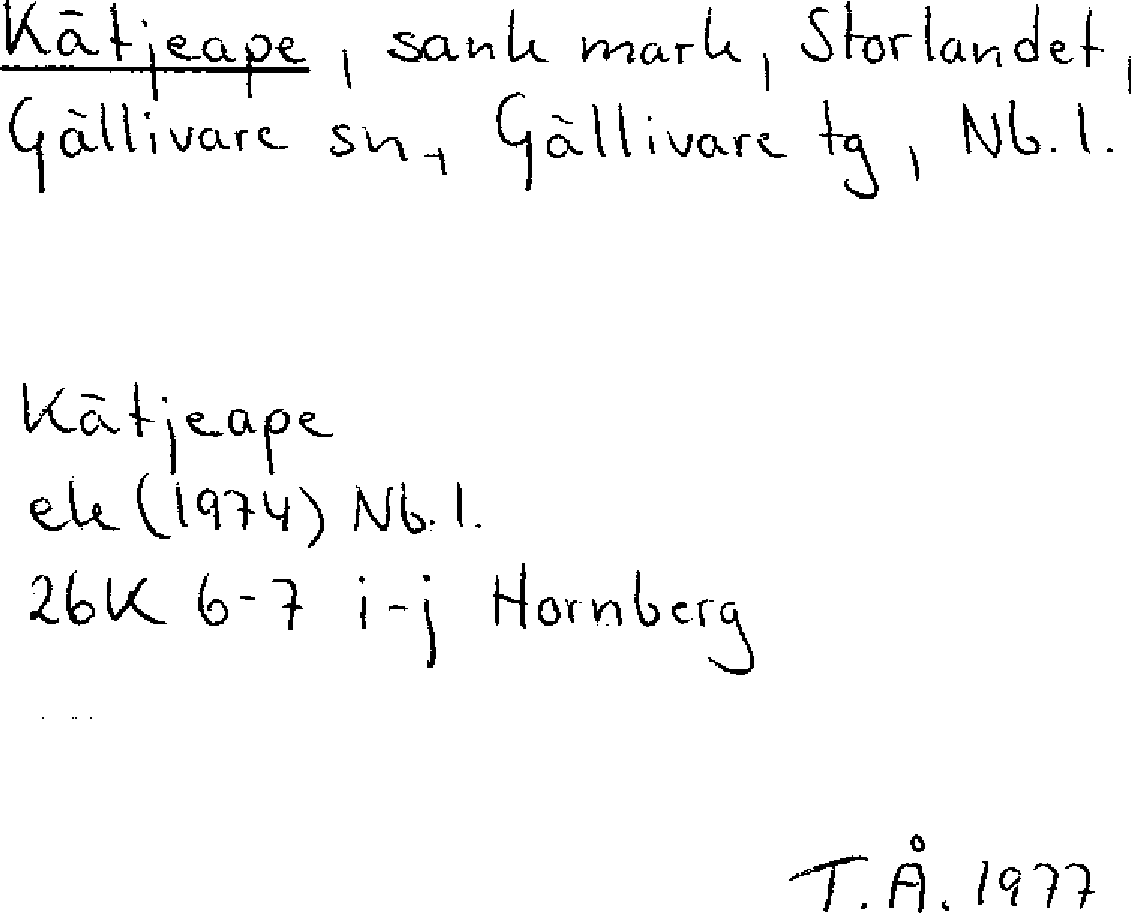 Kätjeape, sank mark, Storlandet,
Gällivare sn, Gällivare tg, Nb. l.
Kätjeape
ek (1974) Nb. l.
26K 6-7 i-j Hornberg
T.Å. 1977